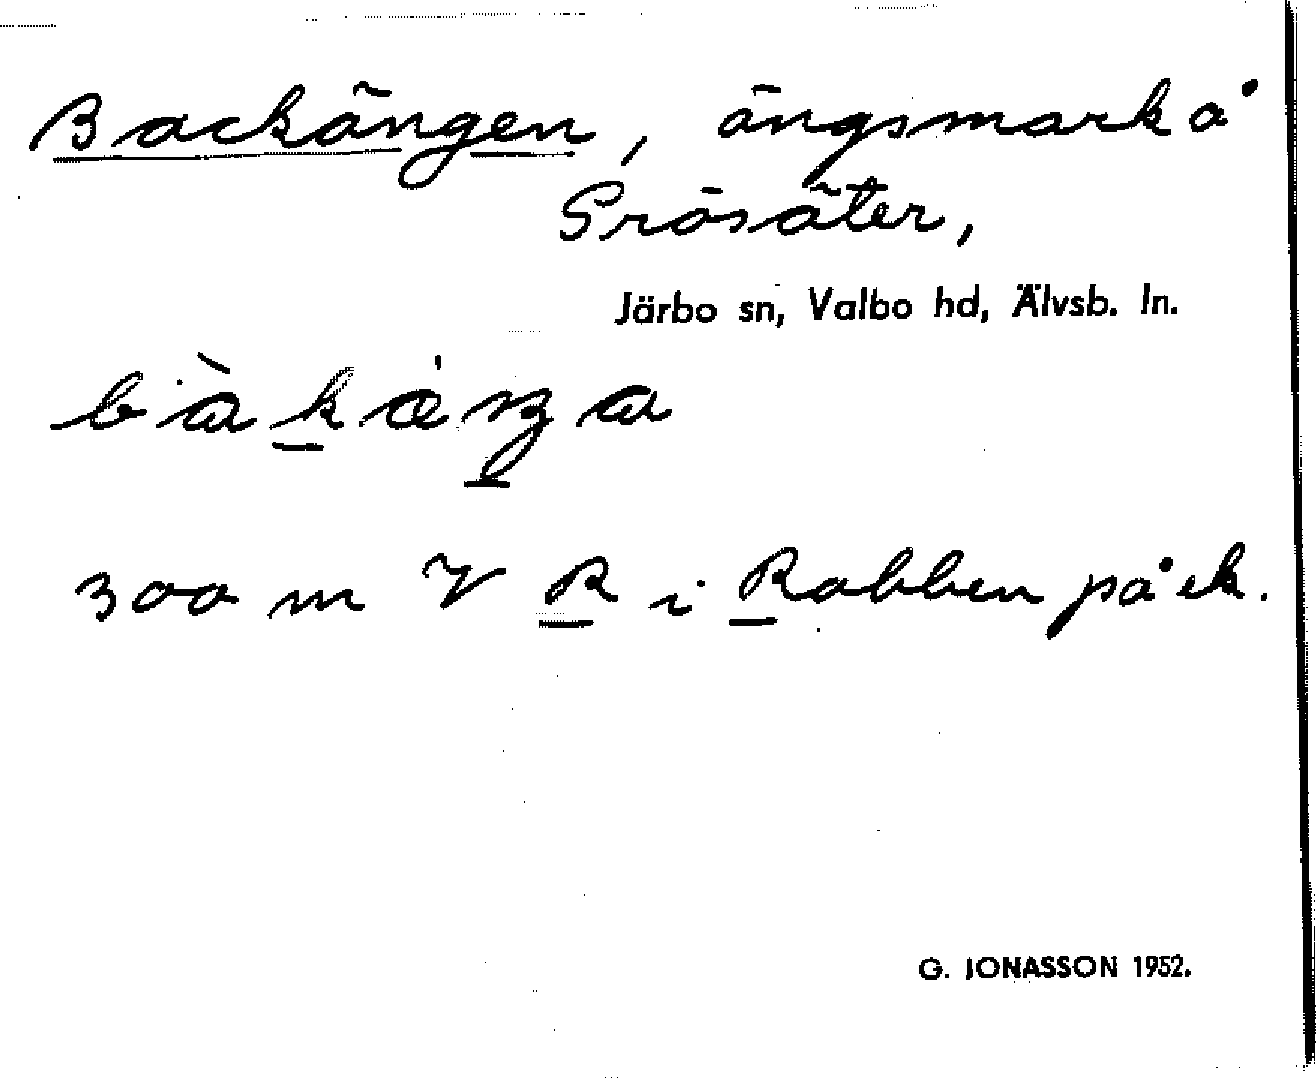 Backängen, ängsmark å
Prösäter,
Järbo sn, Valbo hd, Älvsb. ln.
300 m V R i Rabben på ek.
G. JONASSON 1952.